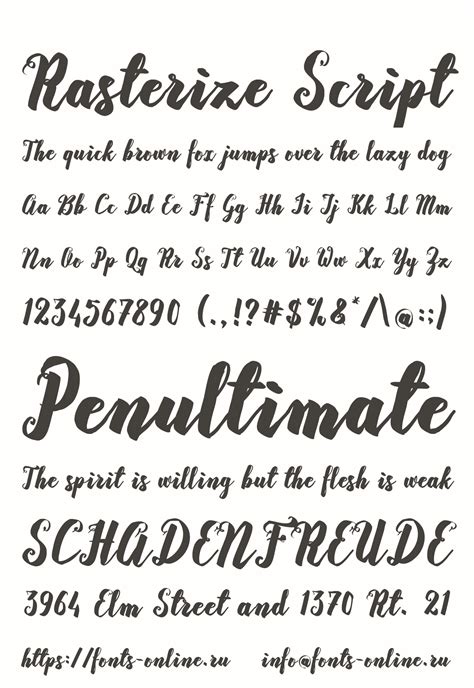 Rasterize Script
The quick brown fox jumps over the lazy dog
Aa Bb Cc Dd Ee Ff Gg Hh Ii Jj Kk Ll Mm
Nn Oo Pp Qq Rr Ss Tt Uu Vv Ww Xx Yy Zz
1234567890 (.,!?#$%&*/\@:;)
Penultimate
The spirit is willing but the flesh is weak
SCHADENFREUDE
3964 Elm Street and 1370 Rt. 21
https://fonts-online.ru info@fonts-online.ru